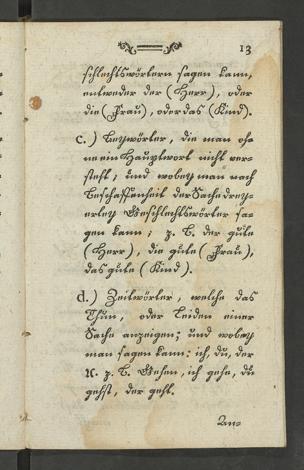 13
schlechtswörtern sagen kann,
entweder der (Herr), oder
die (Frau), oder das (Kind).
c.) Beywörter, die man oh=
ne ein Hauptwort nicht ver=
steht; und wobey man nach
Beschaffenheit der Sache drey=
erley Geschlechtswörter sa=
gen kann; z. B. der gute
(Herr), die gute (Frau),
das gute (Kind).
d.) Zeitwörter, welche das
Thun, oder Leiden einer
Sache anzeigen; und wobey
man sagen kann: ich, du, der
z. B. Gehen, ich gehe, du
gehst, der geht.